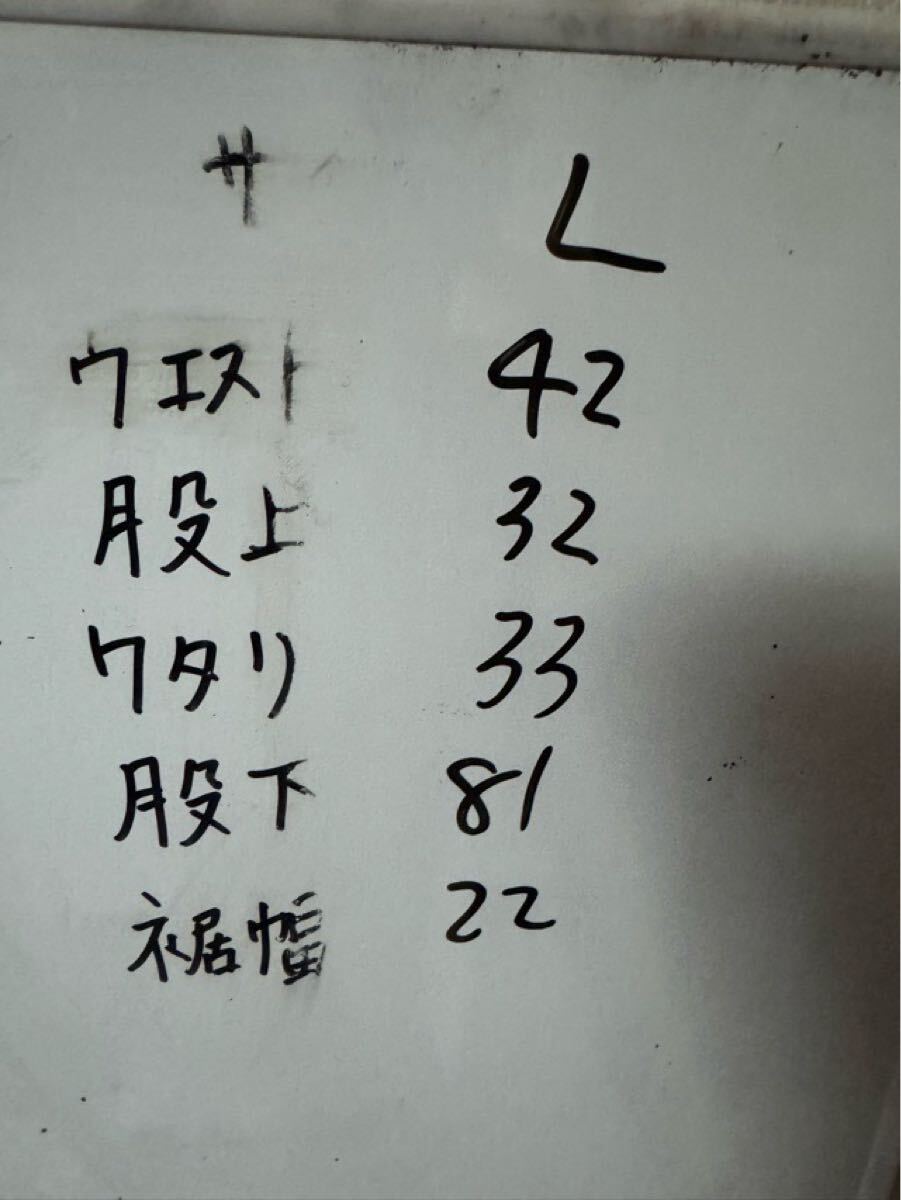 サ L
ウエスト 42
股上 32
ワタリ 33
股下 81
裾幅 22